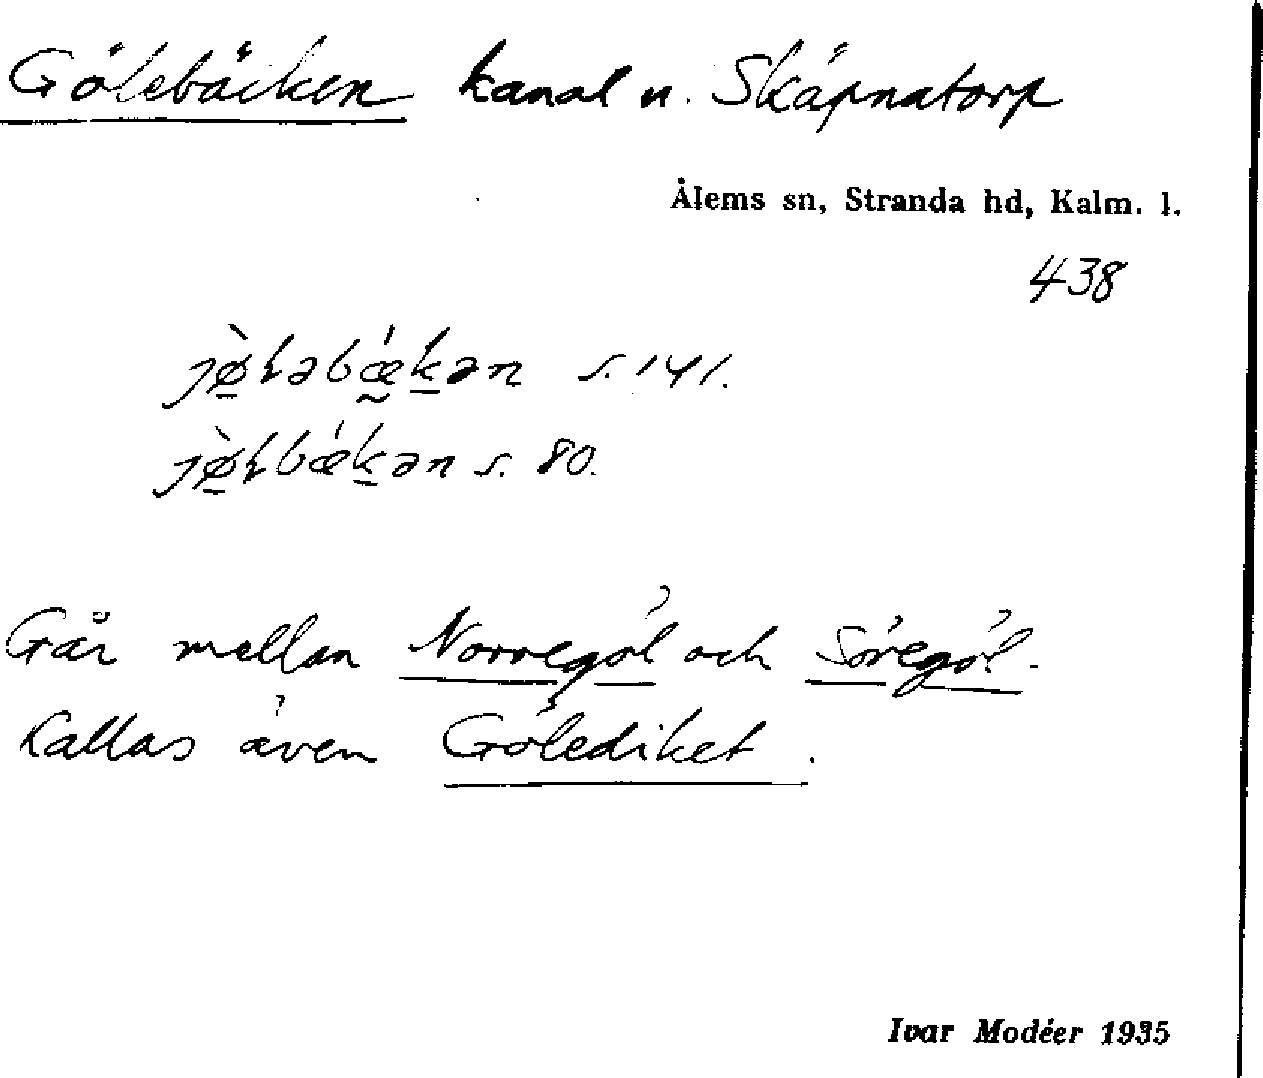 Gölebäcken kanal n. Skäpnatorp
Ålems sn, Stranda hd, Kalm. l.
438
jø̀ɭəbǽkən s. 141.
jø̀ɭbǽkən s. 80.
Går mellan Norregöl och Söregöl.
Kallas även Gölediket.
Ivar Modéer 1935